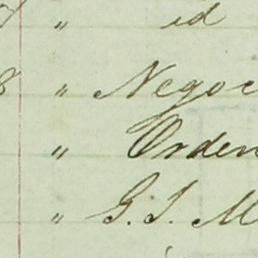 " id
8 " Negoc
" Orden
" G. I. M